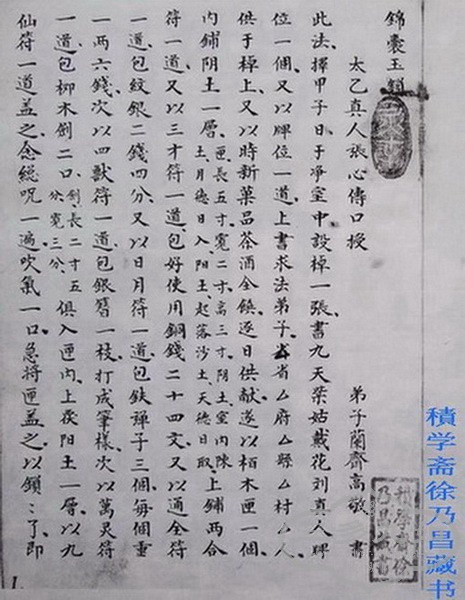 錦囊玉鎖
太乙真人張心傳口授
弟子蘭齋高敬 書
此法、擇甲子日于凈室中、設棹一張、書九天紫姑戴花刘真人牌
位一個、又以牌位一道、上書求法弟子厶省厶府厶縣厶村厶人、
供于棹上、又以時新菓品茶酒全鎮、逐日供献、遂以栢木匣一個、
内鋪阴土一層、匣長五寸、寬二寸、高三寸、阴土室内陳
土、月德日入、阳土、起落沙土、天德日取、上鋪两合
符一道、又以三才符一道、包好使用銅錢二十四文、又以通全符
一道、包紋銀二錢四分、又以日月符一道、包鉄弹子三個、每個重
一两六錢、次以四獸符一道、包銀簪一枝、打成筆樣、次以萬灵符
一道、包柳木劍二口、劍長二寸五
分、寬三分、俱入匣内、上 阳土一層、以九
仙符一道盖之、念總咒一遍、吹氣一口、急将匣盖之、以鎖〻了、即
積學齋徐
乃昌藏書
積学斋徐乃昌藏书
1